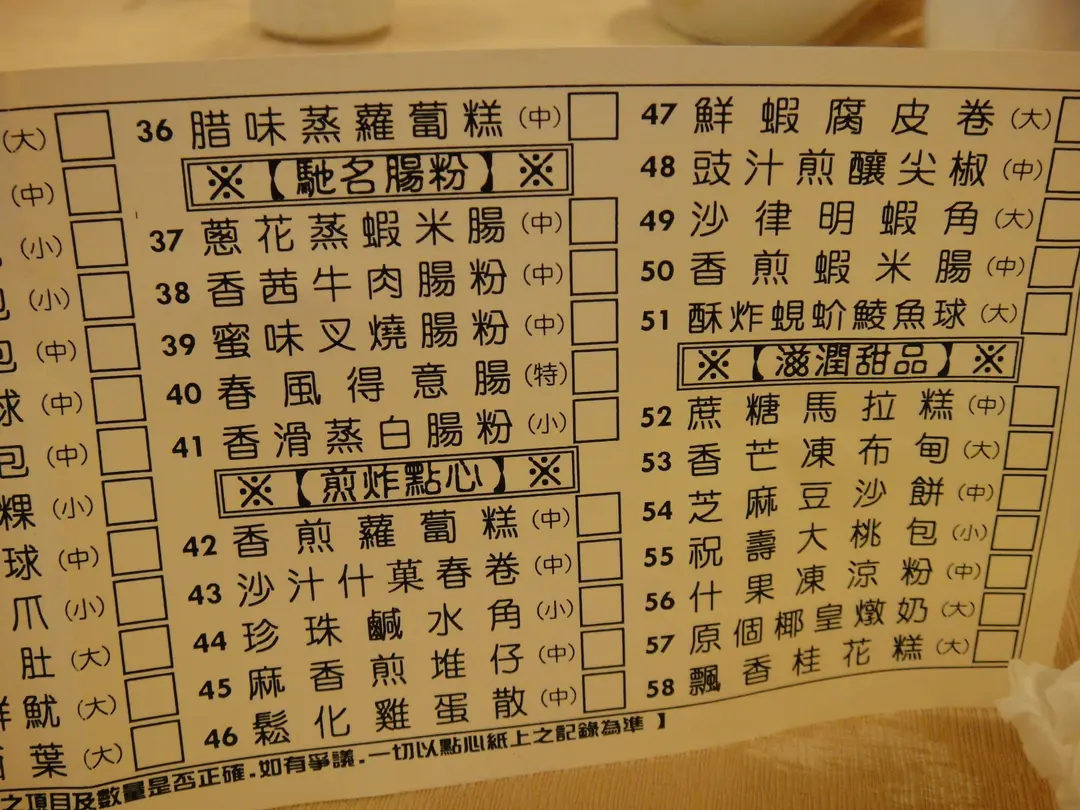 (大)
(中)
(小)
(小)
包 (中)
球 (中)
包 (中)
粿 (小)
球 (中)
爪 (小)
肚 (大)
鮮魷 (大)
葉 (大)
36 腊味蒸蘿蔔糕 (中)
※【馳名腸粉】※
37 蔥花蒸蝦米腸 (中)
38 香茜牛肉腸粉 (中)
39 蜜味叉燒腸粉 (中)
40 春風得意腸 (特)
41 香滑蒸白腸粉 (小)
※【煎炸點心】※
42 香煎蘿蔔糕 (中)
43 沙汁什菓春卷 (中)
44 珍珠鹹水角 (小)
45 麻香煎堆仔 (中)
46 鬆化雞蛋散 (中)
47 鮮蝦腐皮卷 (大)
48 豉汁煎釀尖椒 (中)
49 沙律明蝦角 (大)
50 香煎蝦米腸 (中)
51 酥炸蜆蚧鯪魚球 (大)
※【滋潤甜品】※
52 蔗糖馬拉糕 (中)
53 香芒凍布甸 (大)
54 芝麻豆沙餅 (中)
55 祝壽大桃包 (小)
56 什果凍涼粉 (中)
57 原個椰皇燉奶 (大)
58 飄香桂花糕 (大)
之項目及數量是否正確．如有爭議．一切以點心紙上之記錄為準】